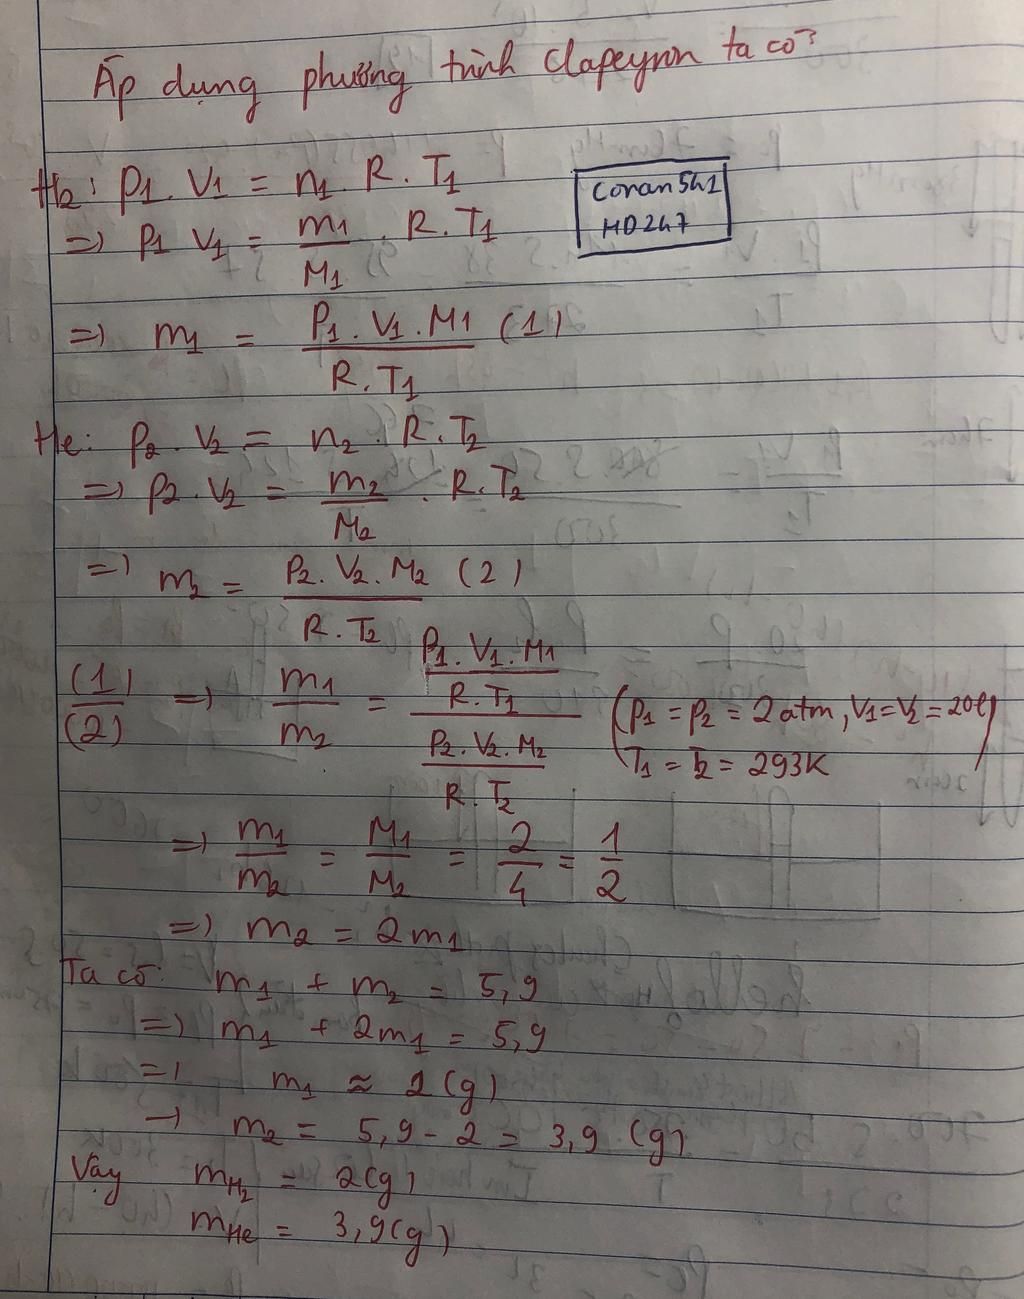 Áp dụng phương trình Clapeyron ta có:
H2: P1.V1 = n1.R.T1
Conan5h1
HD247
=> P1 V1 = m1/M1 . R.T1
=> m1 = P1.V1.M1/R.T1 (1)
He: P2.V2 = n2.R.T2
=> P2.V2 = m2/M2 . R.T2
=> m2 = P2.V2.M2/R.T2 (2)
(1)/(2) => m1/m2 = (P1.V1.M1/R.T1)/(P2.V2.M2/R.T2) (P1 = P2 = 2 atm, V1 = V2 = 20l
T1 = T2 = 293K)
=> m1/m2 = M1/M2 = 2/4 = 1/2
=> m2 = 2m1
Ta có: m1 + m2 = 5,9
=> m1 + 2m1 = 5,9
=> m1 ≈ 2 (g)
→ m2 = 5,9 - 2 = 3,9 (g)
Vậy mH2 = 2(g)
mHe = 3,9(g)